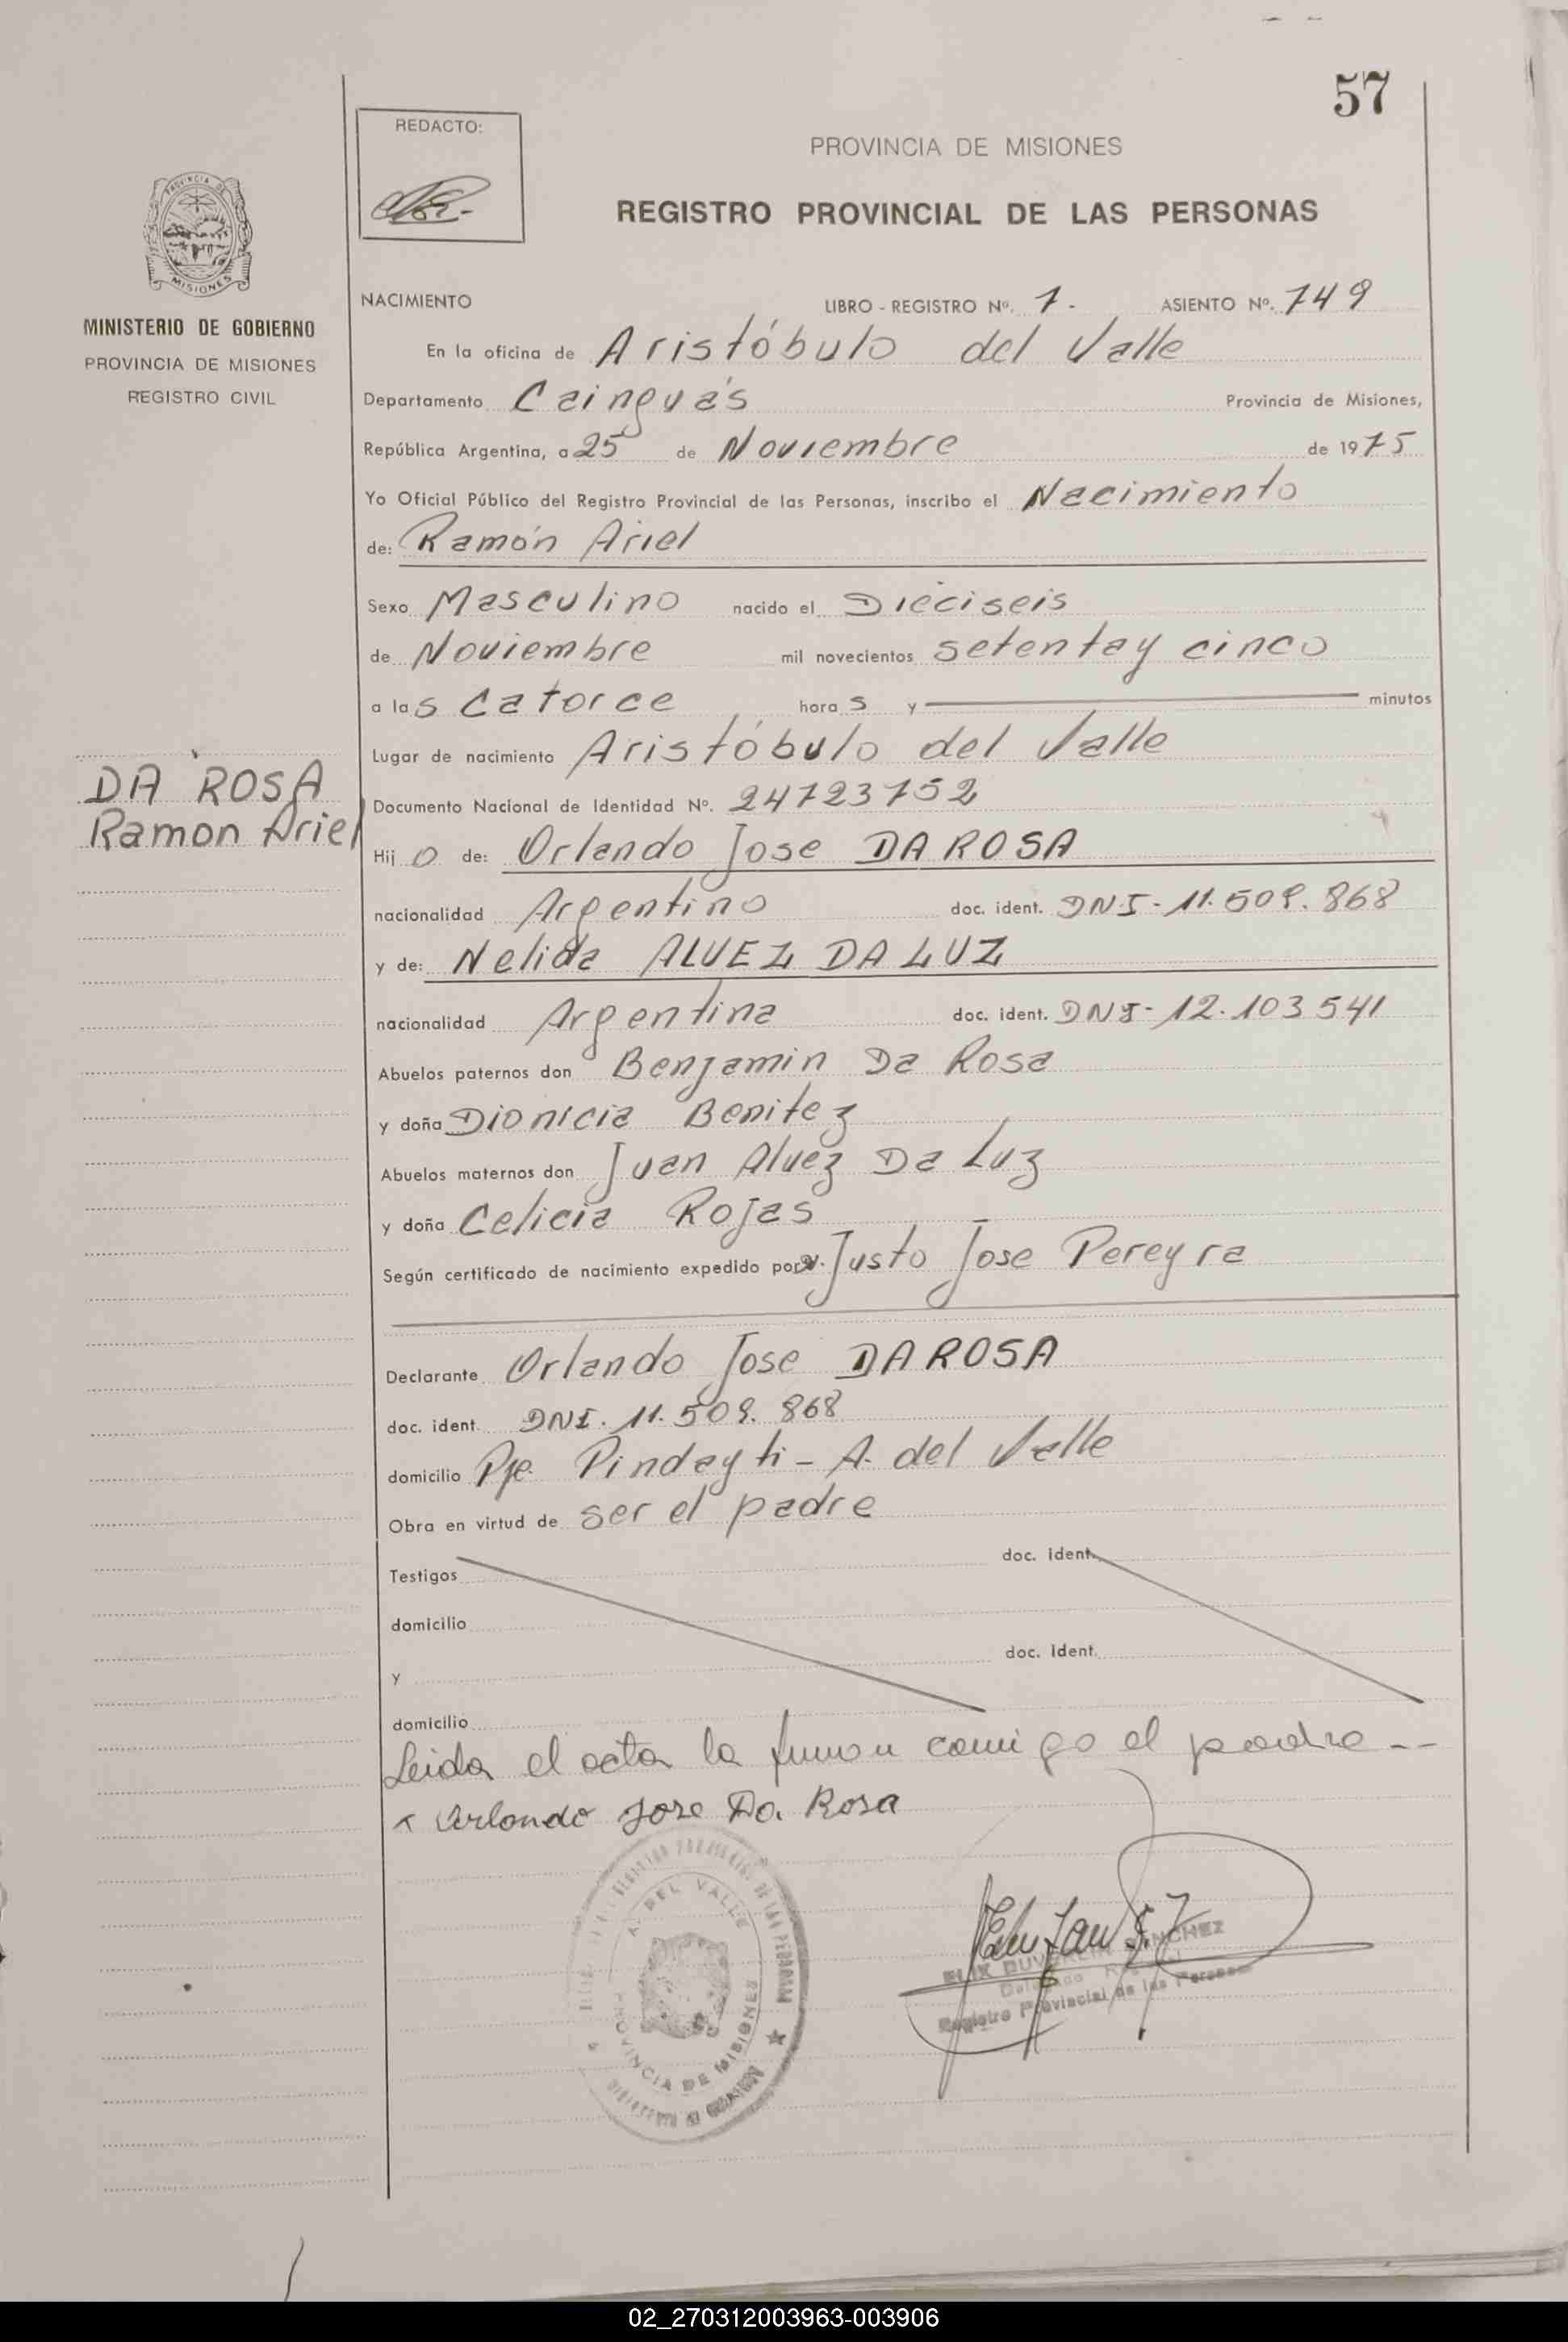 57
REDACTO:
PROVINCIA DE MISIONES
REGISTRO PROVINCIAL DE LAS PERSONAS
MINISTERIO DE GOBIERNO
PROVINCIA DE MISIONES
REGISTRO CIVIL
NACIMIENTO LIBRO - REGISTRO Nº. 1.- ASIENTO Nº. 749
En la oficina de Aristóbulo del Valle
Departamento Cainguás Provincia de Misiones,
República Argentina, a 25 de Noviembre de 1975
Yo Oficial Público del Registro Provincial de las Personas, inscribo el Nacimiento
de: Ramón Ariel
Sexo Masculino nacido el Dieciseis
de Noviembre mil novecientos setenta y cinco
a las catorce horas y minutos
Lugar de nacimiento Aristóbulo del Valle
DA ROSA
Ramon Ariel
Documento Nacional de Identidad Nº. 24723752
Hijo de: Orlando Jose DA ROSA
nacionalidad Argentino doc. ident. DNI-11.509.868
y de: Nelida ALVEZ DA LUZ
nacionalidad Argentina doc. ident. DNI-12.103541
Abuelos paternos don Benjamin Da Rosa
y doña Dionicia Benitez
Abuelos maternos don Juan Alvez Da Luz
y doña Celicia Rojas
Según certificado de nacimiento expedido por Justo Jose Pereyra
Declarante Orlando Jose DA ROSA
doc. ident. DNI. 11.509.868
domicilio Pje. Pindayti - A. del Valle
Obra en virtud de ser el padre
Testigos doc. ident.
domicilio
y doc. ident.
domicilio
Leida el acta la firman comigo el padre --
Orlando Jose Da Rosa
A. DEL VALLE
PROVINCIA DE MISIONES
SANCHEZ
Registro Provincial de las Personas
02_270312003963-003906